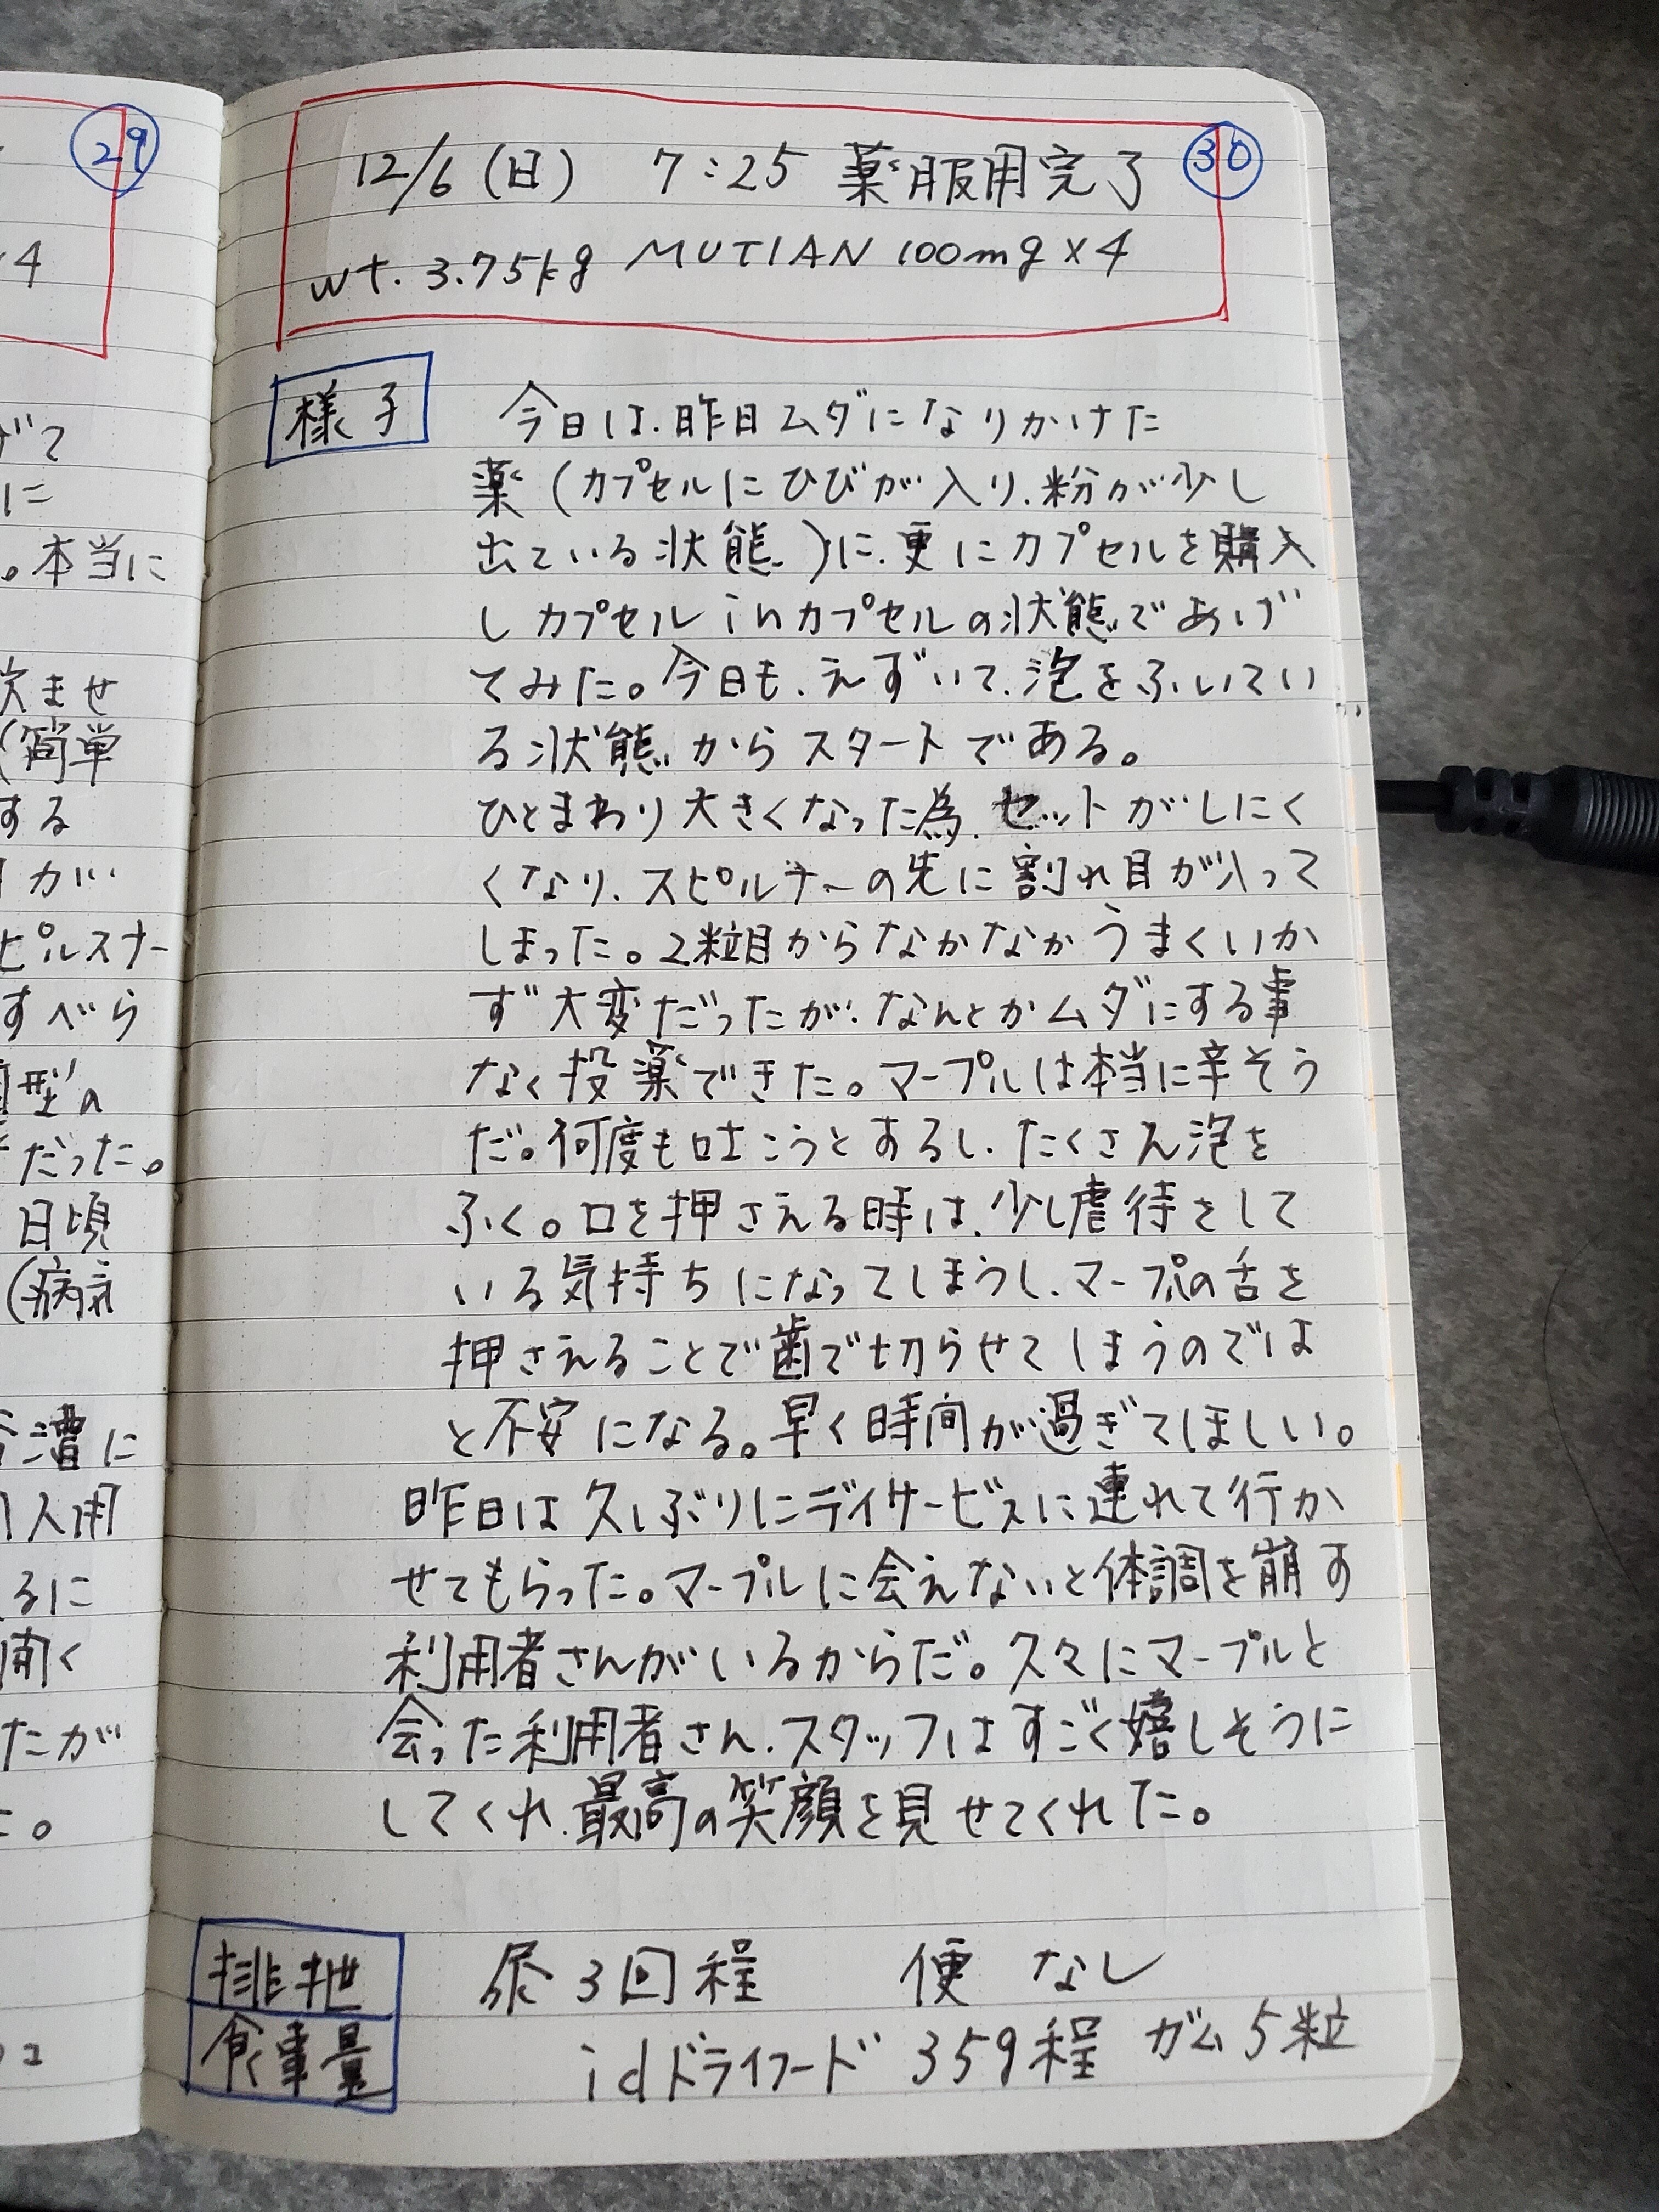 29
4
げて
に
。本当に
ませ
(簡単
する
が…
ピルスナー
すべら
型の
だった。
日頃
(病気
漕に
人用
るに
開く
たが
。
コ
30
12/6(日) 7:25 薬服用完了
wt. 3.75kg MUTIAN 100mg×4
様子
今日は、昨日ムダになりかけた
薬(カプセルにひびが入り、粉が少し
出ている状態)に、更にカプセルを購入
しカプセルinカプセルの状態であげ
てみた。今日も、えずいて、泡をふいてい
る状態からスタートである。
ひとまわり大きくなった為、セットがしにく
くなり、スピルナーの先に割れ目が入って
しまった。2粒目からなかなかうまくいか
ず大変だったが、なんとかムダにする事
なく投薬できた。マープルは本当に辛そう
だ。何度も吐こうとするし、たくさん泡を
ふく。口を押さえる時は、少し虐待をして
いる気持ちになってしまうし、マープルの舌を
押さえることで歯で切らせてしまうのでは
と不安になる。早く時間が過ぎてほしい。
昨日は久しぶりにデイサービスに連れて行か
せてもらった。マープルに会えないと体調を崩す
利用者さんがいるからだ。久々にマープルと
会った利用者さん、スタッフはすごく嬉しそうに
してくれ、最高の笑顔を見せてくれた。
排泄 尿3回程 便 なし
食事量 idドライフード 35g程 ガム5粒